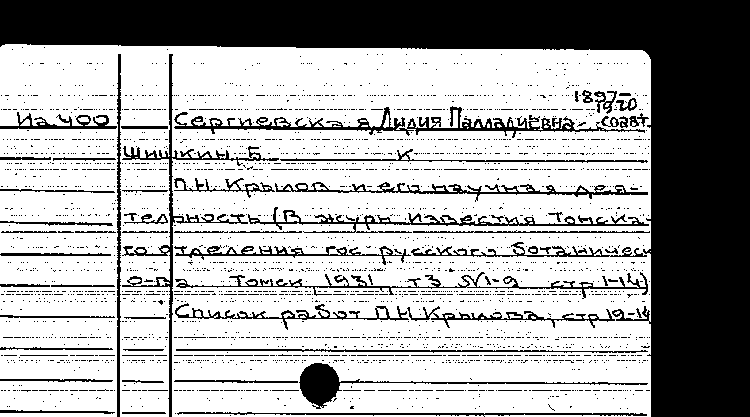 1897-
1970
Иа 400 Сергиевская, Лидия Палладиевна - соавт.
Шишкин, Б. К
П.Н. Крылов и его научная дея-
тельность (В журн Известия Томско-
го отделения гос русского ботаническ
о-ва Томск, 1931, т3 №1-2 стр 1-14)
Список работ П.Н. Крылова, стр 12-14